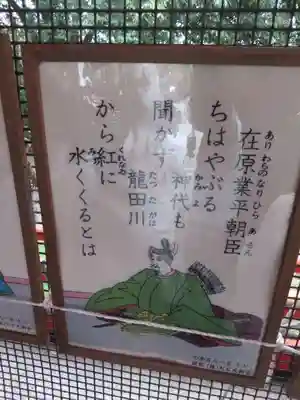 在原業平朝臣
ありわらのなりひらあさん
ちはやぶる
神代も
かみよ
聞かず
龍田川
たつたがは
から紅に
くれなゐ
水くくるとは
みづ